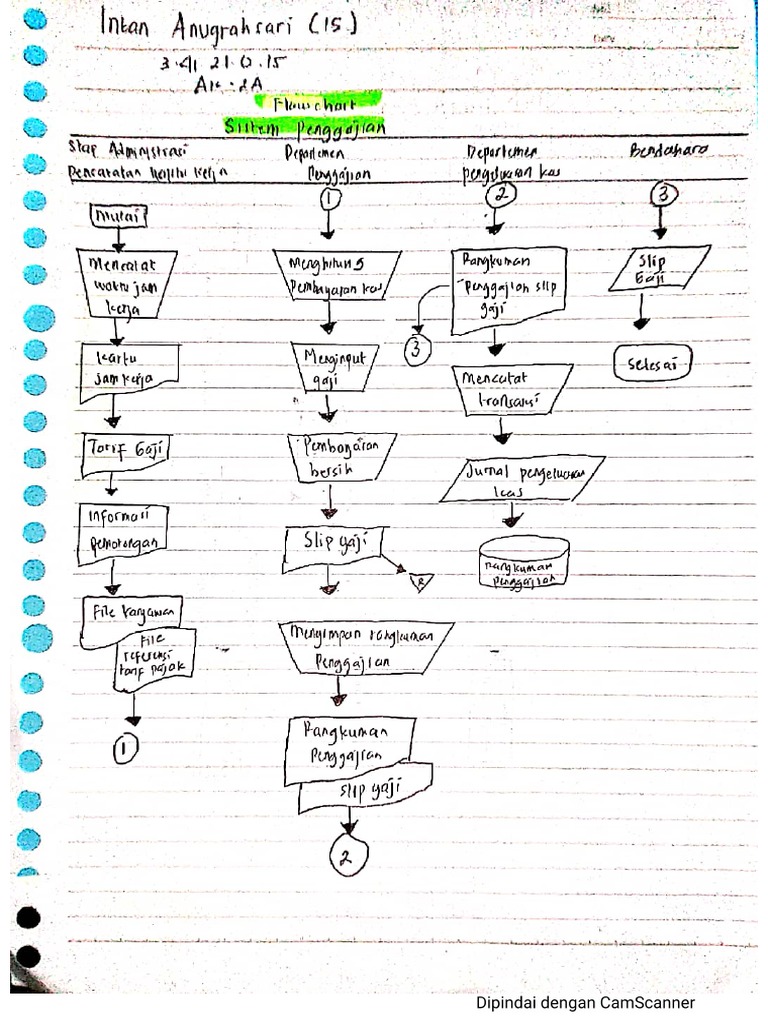 Intan Anugrahsari (15)
3.41.21.0.15
AK-2A
Flowchart
Sistem Penggajian
Stap Administrasi
Pencatatan waktu kerja
Departemen
Penggajian
Departemen
pengeluaran kas
Bendahara
mulai
Mencatat
waktu jam
kerja
kartu
jam kerja
Tarif Gaji
Informasi
pemotongan
File karyawan
File
referensi
tarif pajak
1
1
Menghitung
Pembayaran kas
Menginput
gaji
Pembayaran
bersih
Slip gaji
Menyimpan rangkuman
Penggajian
Rangkuman
Penggajian
Slip gaji
2
2
Rangkuman
Penggajian slip
gaji
3
Mencatat
transaksi
Jurnal pengeluaran
kas
Rangkuman
penggajian
3
Slip
Gaji
Selesai
Dipindai dengan CamScanner